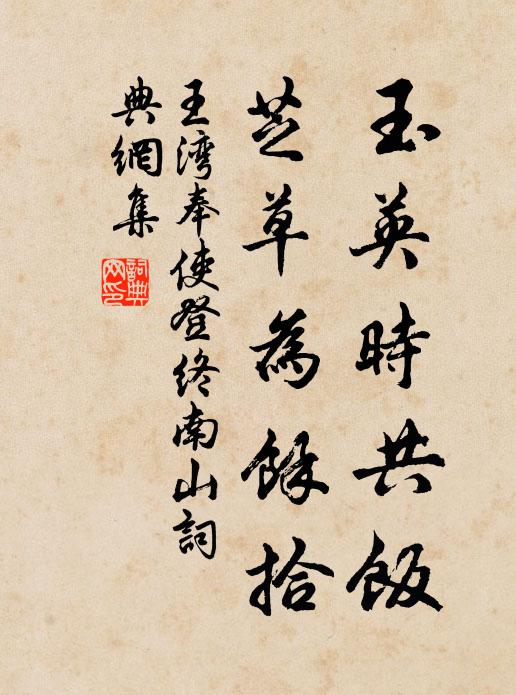 玉英時共飯
芝草為餘拾
王灣奉使登終南山詞
典網集
詞典網印